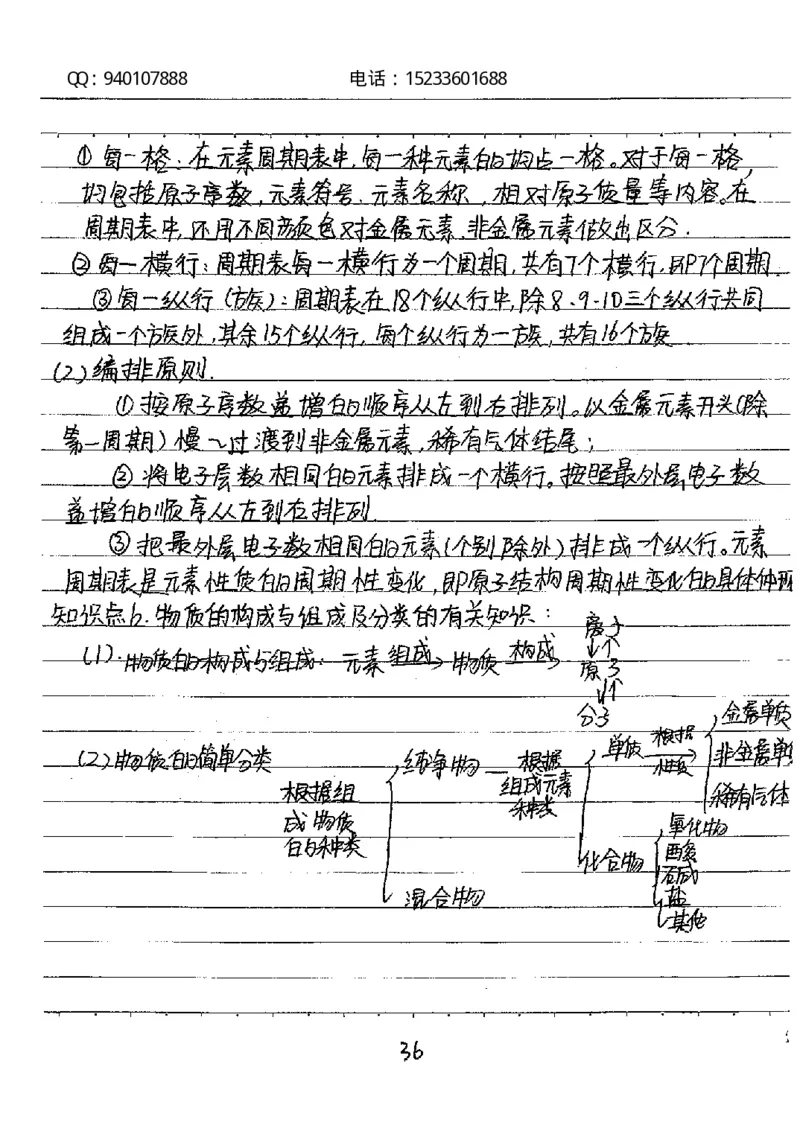 QQ：940107888 电话：15233601688
①每一格：在元素周期表中,每一种元素的均占一格。对于每一格,
均包括原子序数、元素符号、元素名称、相对原子质量等内容。在
周期表中,还用不同颜色对金属元素、非金属元素做出区分.
②每一横行：周期表每一横行为一个周期,共有7个横行,即7个周期.
③每一纵行（族）：周期表在18个纵行中,除8、9、10三个纵行共同
组成一个族外,其余15个纵行,每个纵行为一族,共有16个族
(2)编排原则.
①按原子序数递增的顺序从左到右排列。以金属元素开头(除
第一周期）慢慢过渡到非金属元素,稀有气体结尾；
②将电子层数相同的元素排成一个横行。按照最外层电子数
递增的顺序从左到右排列.
③把最外层电子数相同的元素(个别除外)排成一个纵行。元素
周期表是元素性质的周期性变化,即原子结构周期性变化的具体体现
知识点6.物质的构成与组成及分类的有关知识：
(1).物质的构成与组成：元素 组成 物质 构成
离子
原子
分子
(2)物质的简单分类
根据组
成物质
的种类
纯净物
混合物
根据
组成元素
种类
单质
化合物
根据
性质
金属单质
非金属单质
稀有气体
氧化物
酸
碱
盐
其他
36